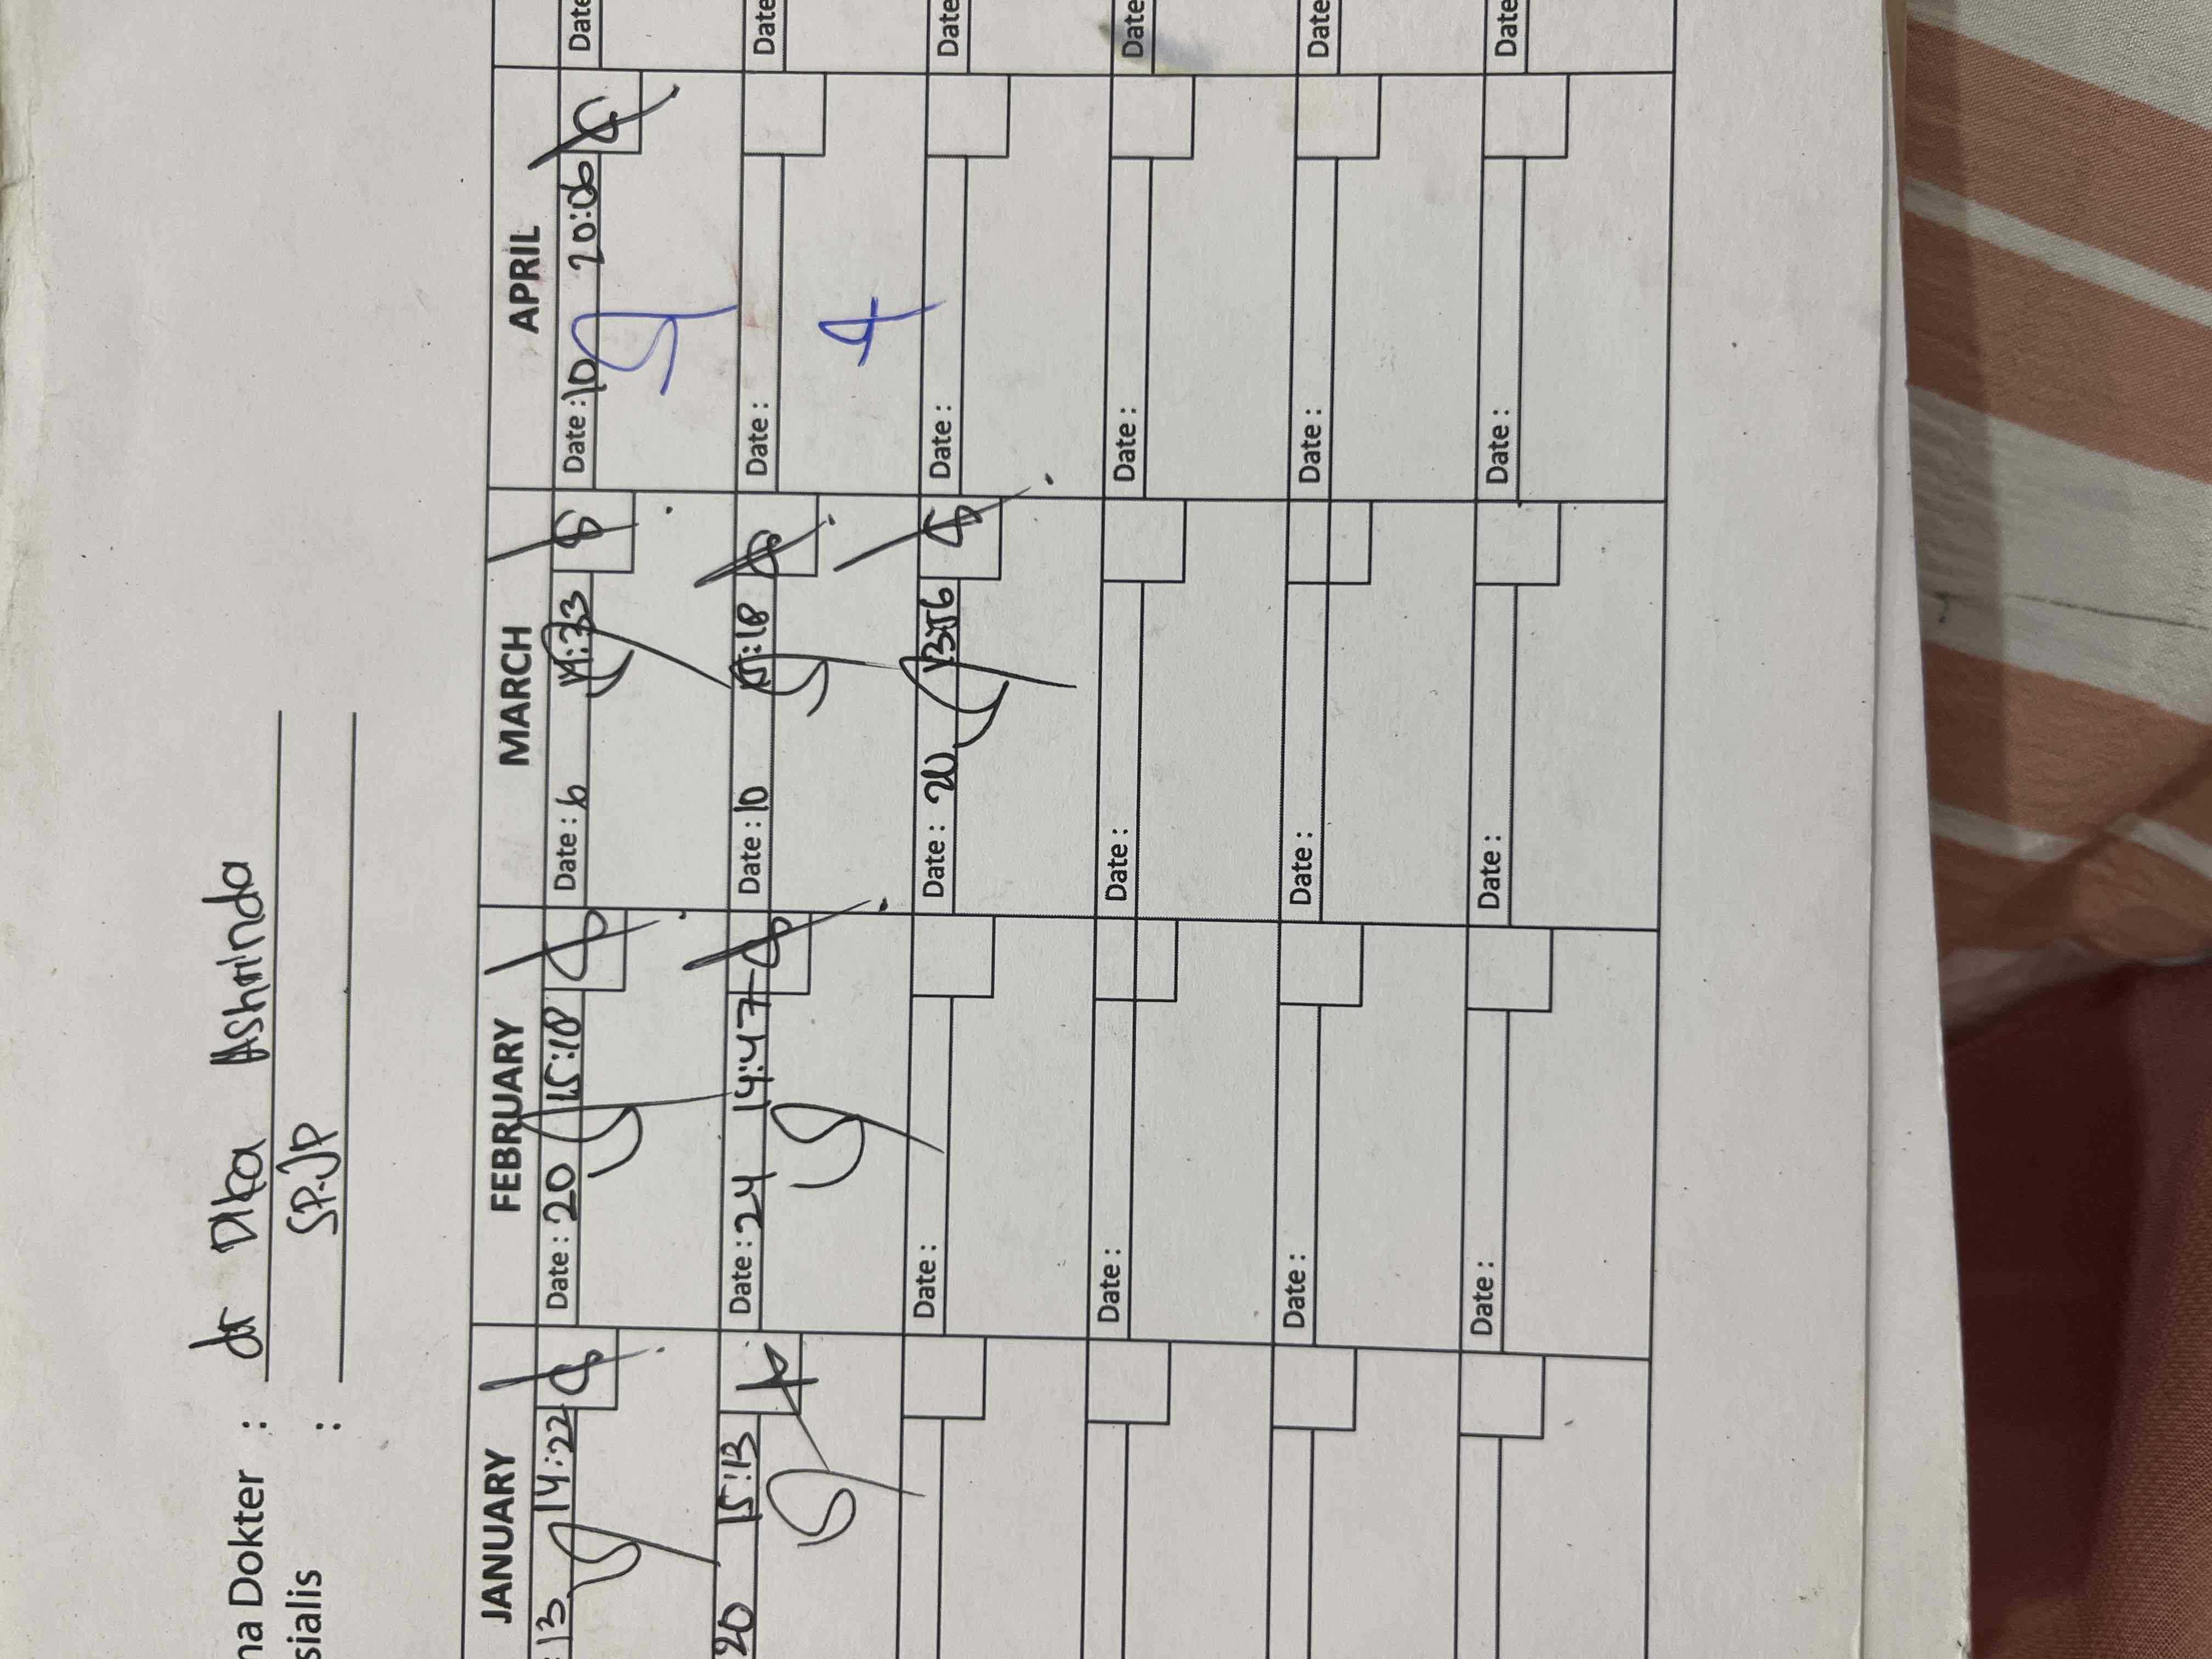 na Dokter : dr Dika Ashrinda
sialis : SP.JP
JANUARY FEBRUARY MARCH APRIL
: 13 14:22 Date : 20 15:18 Date : 6 14:33 Date : 10 20:06 Date
20 15:13 Date : 24 14:47 Date : 10 15:18 Date : Date
Date : Date : 20 13:56 Date : Date
Date : Date : Date : Date
Date : Date : Date : Date
Date : Date : Date : Date